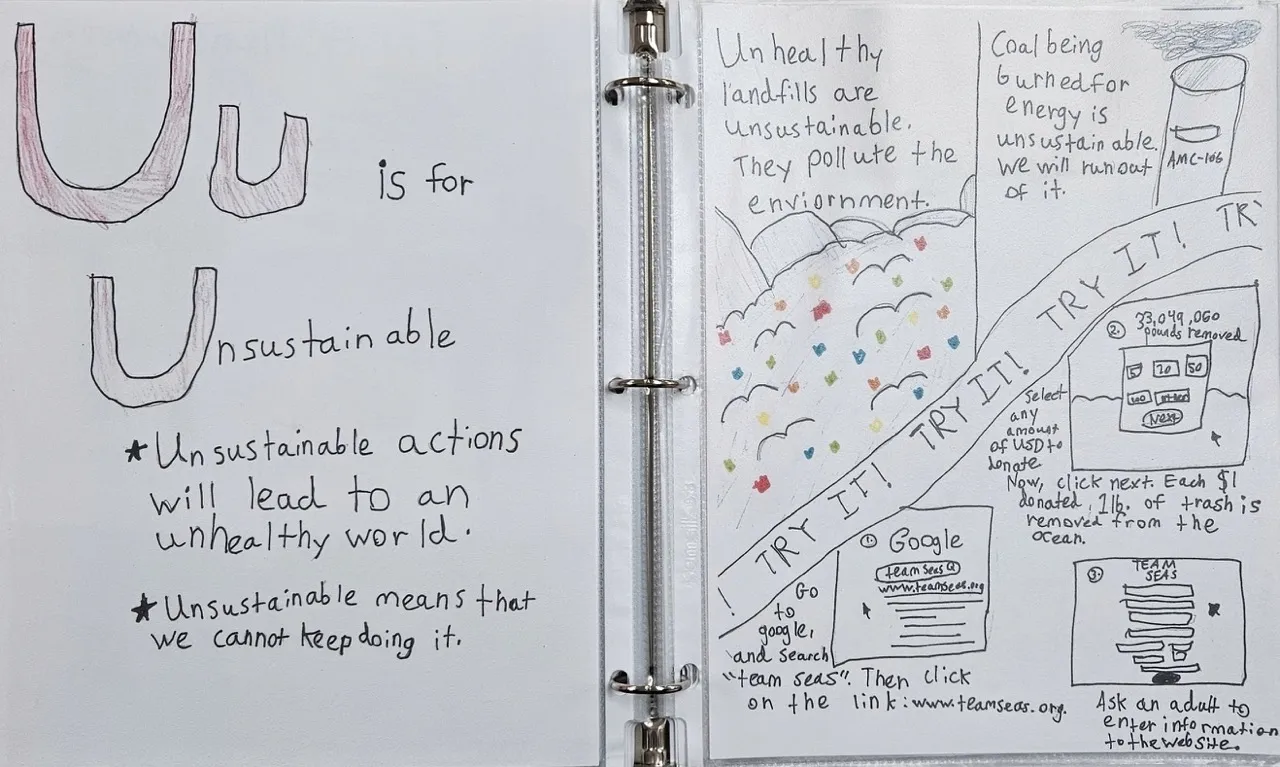 U u is for
Unsustainable
★ Unsustainable actions
will lead to an
unhealthy world.
★ Unsustainable means that
we cannot keep doing it.
Unhealthy
landfills are
unsustainable.
They pollute the
enviornment.
Coal being
burned for
energy is
unsustainable.
We will run out
of it.
AMC-166
! TRY IT! TRY IT! TRY IT! TRY
1. Google
team seas
www.teamseas.org
Go
to
google,
and search
"team seas". Then click
on the link: www.teamseas.org.
2. 33,049,060
pounds removed
5 20 50
100 other
Next
Select
any
amount
of USD to
donate
Now, click next. Each $1
donated, 1lb. of trash is
removed from the
ocean.
3. TEAM
SEAS
Ask an adult to
enter information
to the website.